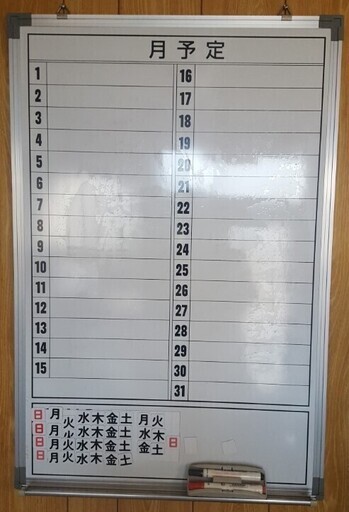 月予定
1
2
3
4
5
6
7
8
9
10
11
12
13
14
15
16
17
18
19
20
21
22
23
24
25
26
27
28
29
30
31
日月火水木金土
日月火水木金土
日月火水木金土
日月火水木金土
月火
水木
金土
日